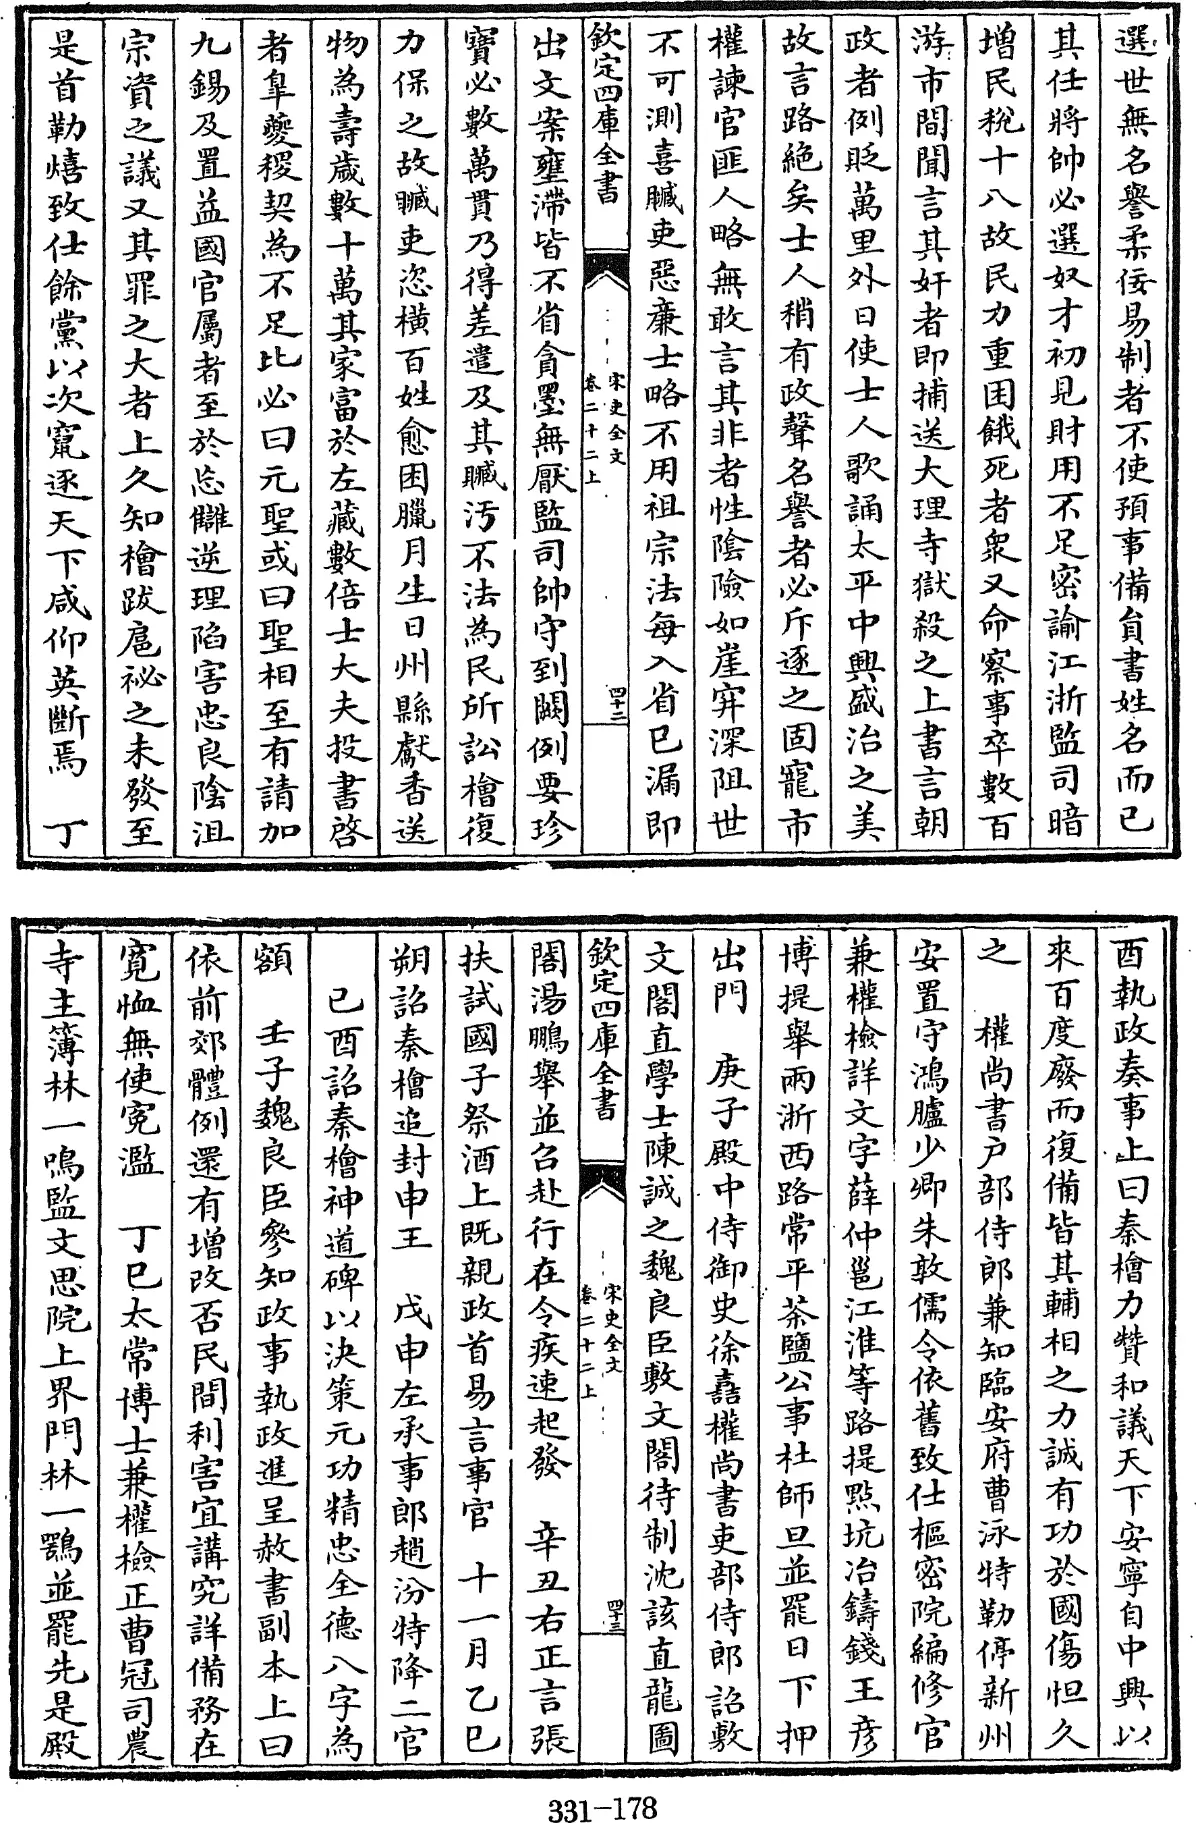 選世無名譽柔佞易制者不使預事備員書姓名而已
其任將帥必選奴才初見財用不足密諭江浙監司暗
增民稅十八故民力重困餓死者衆又命察事卒數百
游市間聞言其奸者即捕送大理寺獄殺之上書言朝
政者例貶萬里外日使士人歌誦太平中興盛治之美
故言路絶矣士人稍有政聲名譽者必斥逐之固寵市
權諫官匪人略無敢言其非者性陰險如崖穽深阻世
不可測喜贓吏惡廉士略不用祖宗法每入省已漏即
欽定四庫全書
宋史全文
卷二十二上
四十二
出文案壅滯皆不省貪墨無厭監司帥守到闕例要珍
寶必數萬貫乃得差遣及其贓汚不法為民所訟檜復
力保之故贓吏恣橫百姓愈困臘月生日州縣獻香送
物為壽歲數十萬其家富於左藏數倍士大夫投書啓
者臯夔稷契為不足比必曰元聖或曰聖相至有請加
九錫及置益國官屬者至於忘讎逆理陷害忠良陰沮
宗資之議又其罪之大者上久知檜跋扈祕之未發至
是首勒熺致仕餘黨以次竄逐天下咸仰英斷焉　丁
酉執政奏事上曰秦檜力贊和議天下安寧自中興以
來百度廢而復備皆其輔相之力誠有功於國傷怛久
之　權尚書戸部侍郎兼知臨安府曹泳特勒停新州
安置守鴻臚少卿朱敦儒令依舊致仕樞密院編修官
兼權檢詳文字薛仲邕江淮等路提㸃坑冶鑄錢王彦
博提舉兩浙西路常平茶鹽公事杜師旦並罷日下押
出門　庚子殿中侍御史徐嚞權尚書吏部侍郎詔敷
文閣直學士陳誠之魏良臣敷文閣待制沈該直龍圖
欽定四庫全書
宋史全文
卷二十二上
四十三
閣湯鵬舉並召赴行在令疾速起發　辛丑右正言張
扶試國子祭酒上既親政首易言事官　十一月乙巳
朔詔秦檜追封申王　戊申左承事郎趙汾特降二官
己酉詔秦檜神道碑以決策元功精忠全德八字為
額　壬子魏良臣參知政事執政進呈赦書副本上曰
依前郊體例還有增改否民間利害宜講究詳備務在
寛恤無使寃濫　丁巳太常博士兼權檢正曹冠司農
寺主簿林一鳴監文思院上界門林一鶚並罷先是殿
331-178